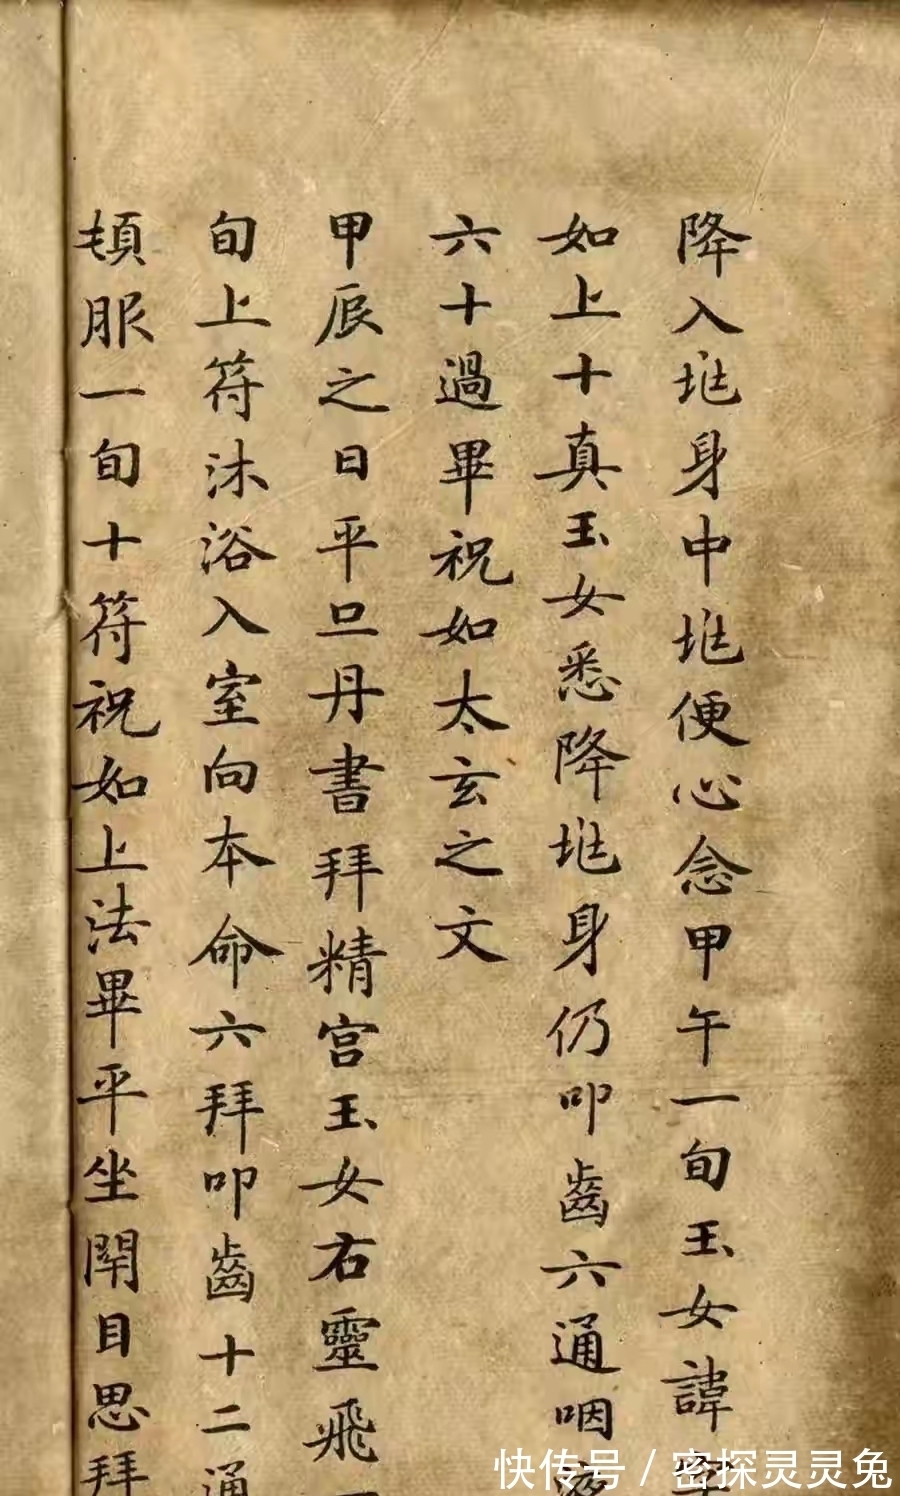 降入兆身中兆便心念甲午一旬玉女諱字
如上十真玉女悉降兆身仍叩齒六通咽液
六十過畢祝如太玄之文
甲辰之日平旦丹書拜精宫玉女右靈飛一
旬上符沐浴入室向本命六拜叩齒十二通
頓服一旬十符祝如上法畢平坐閉目思拜
快传号/密探灵灵兔